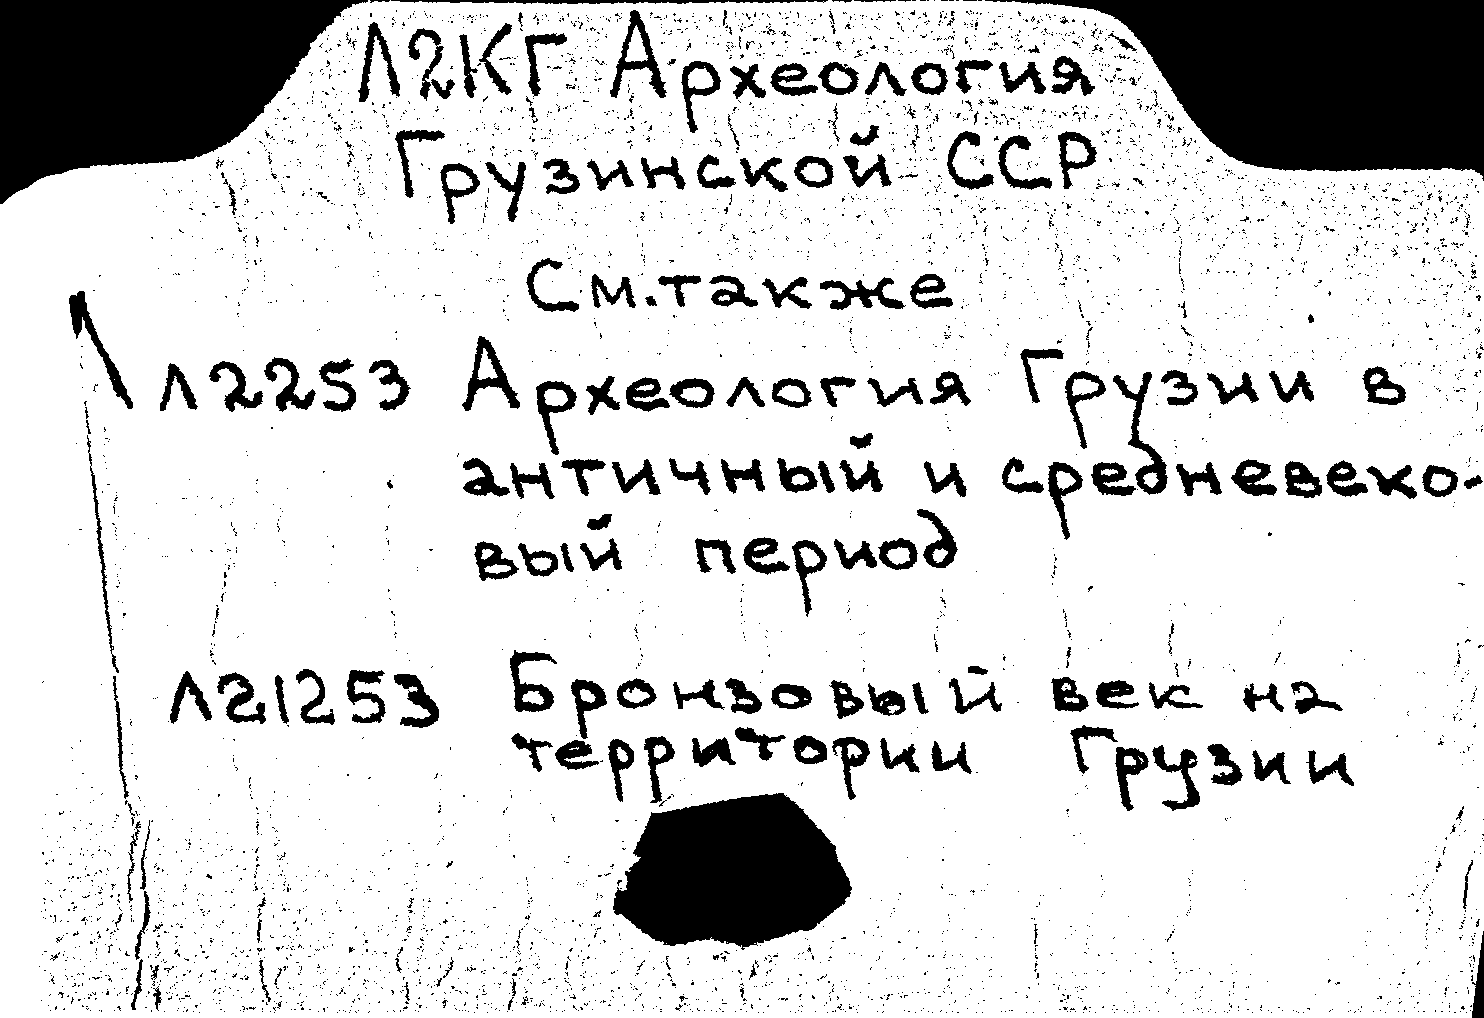 Л2КГ Археология
Грузинской ССР
См. также
Л2253 Археология Грузии в
античный и средневеко-
вый период
Л21253 Бронзовый век на
территории Грузии